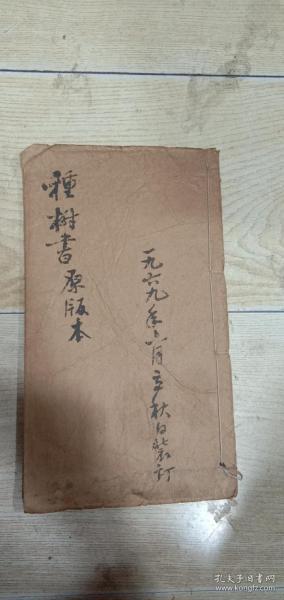 種樹書原版本
一九六九年八月立秋日装訂
孔夫子旧书网
www.kongfz.com